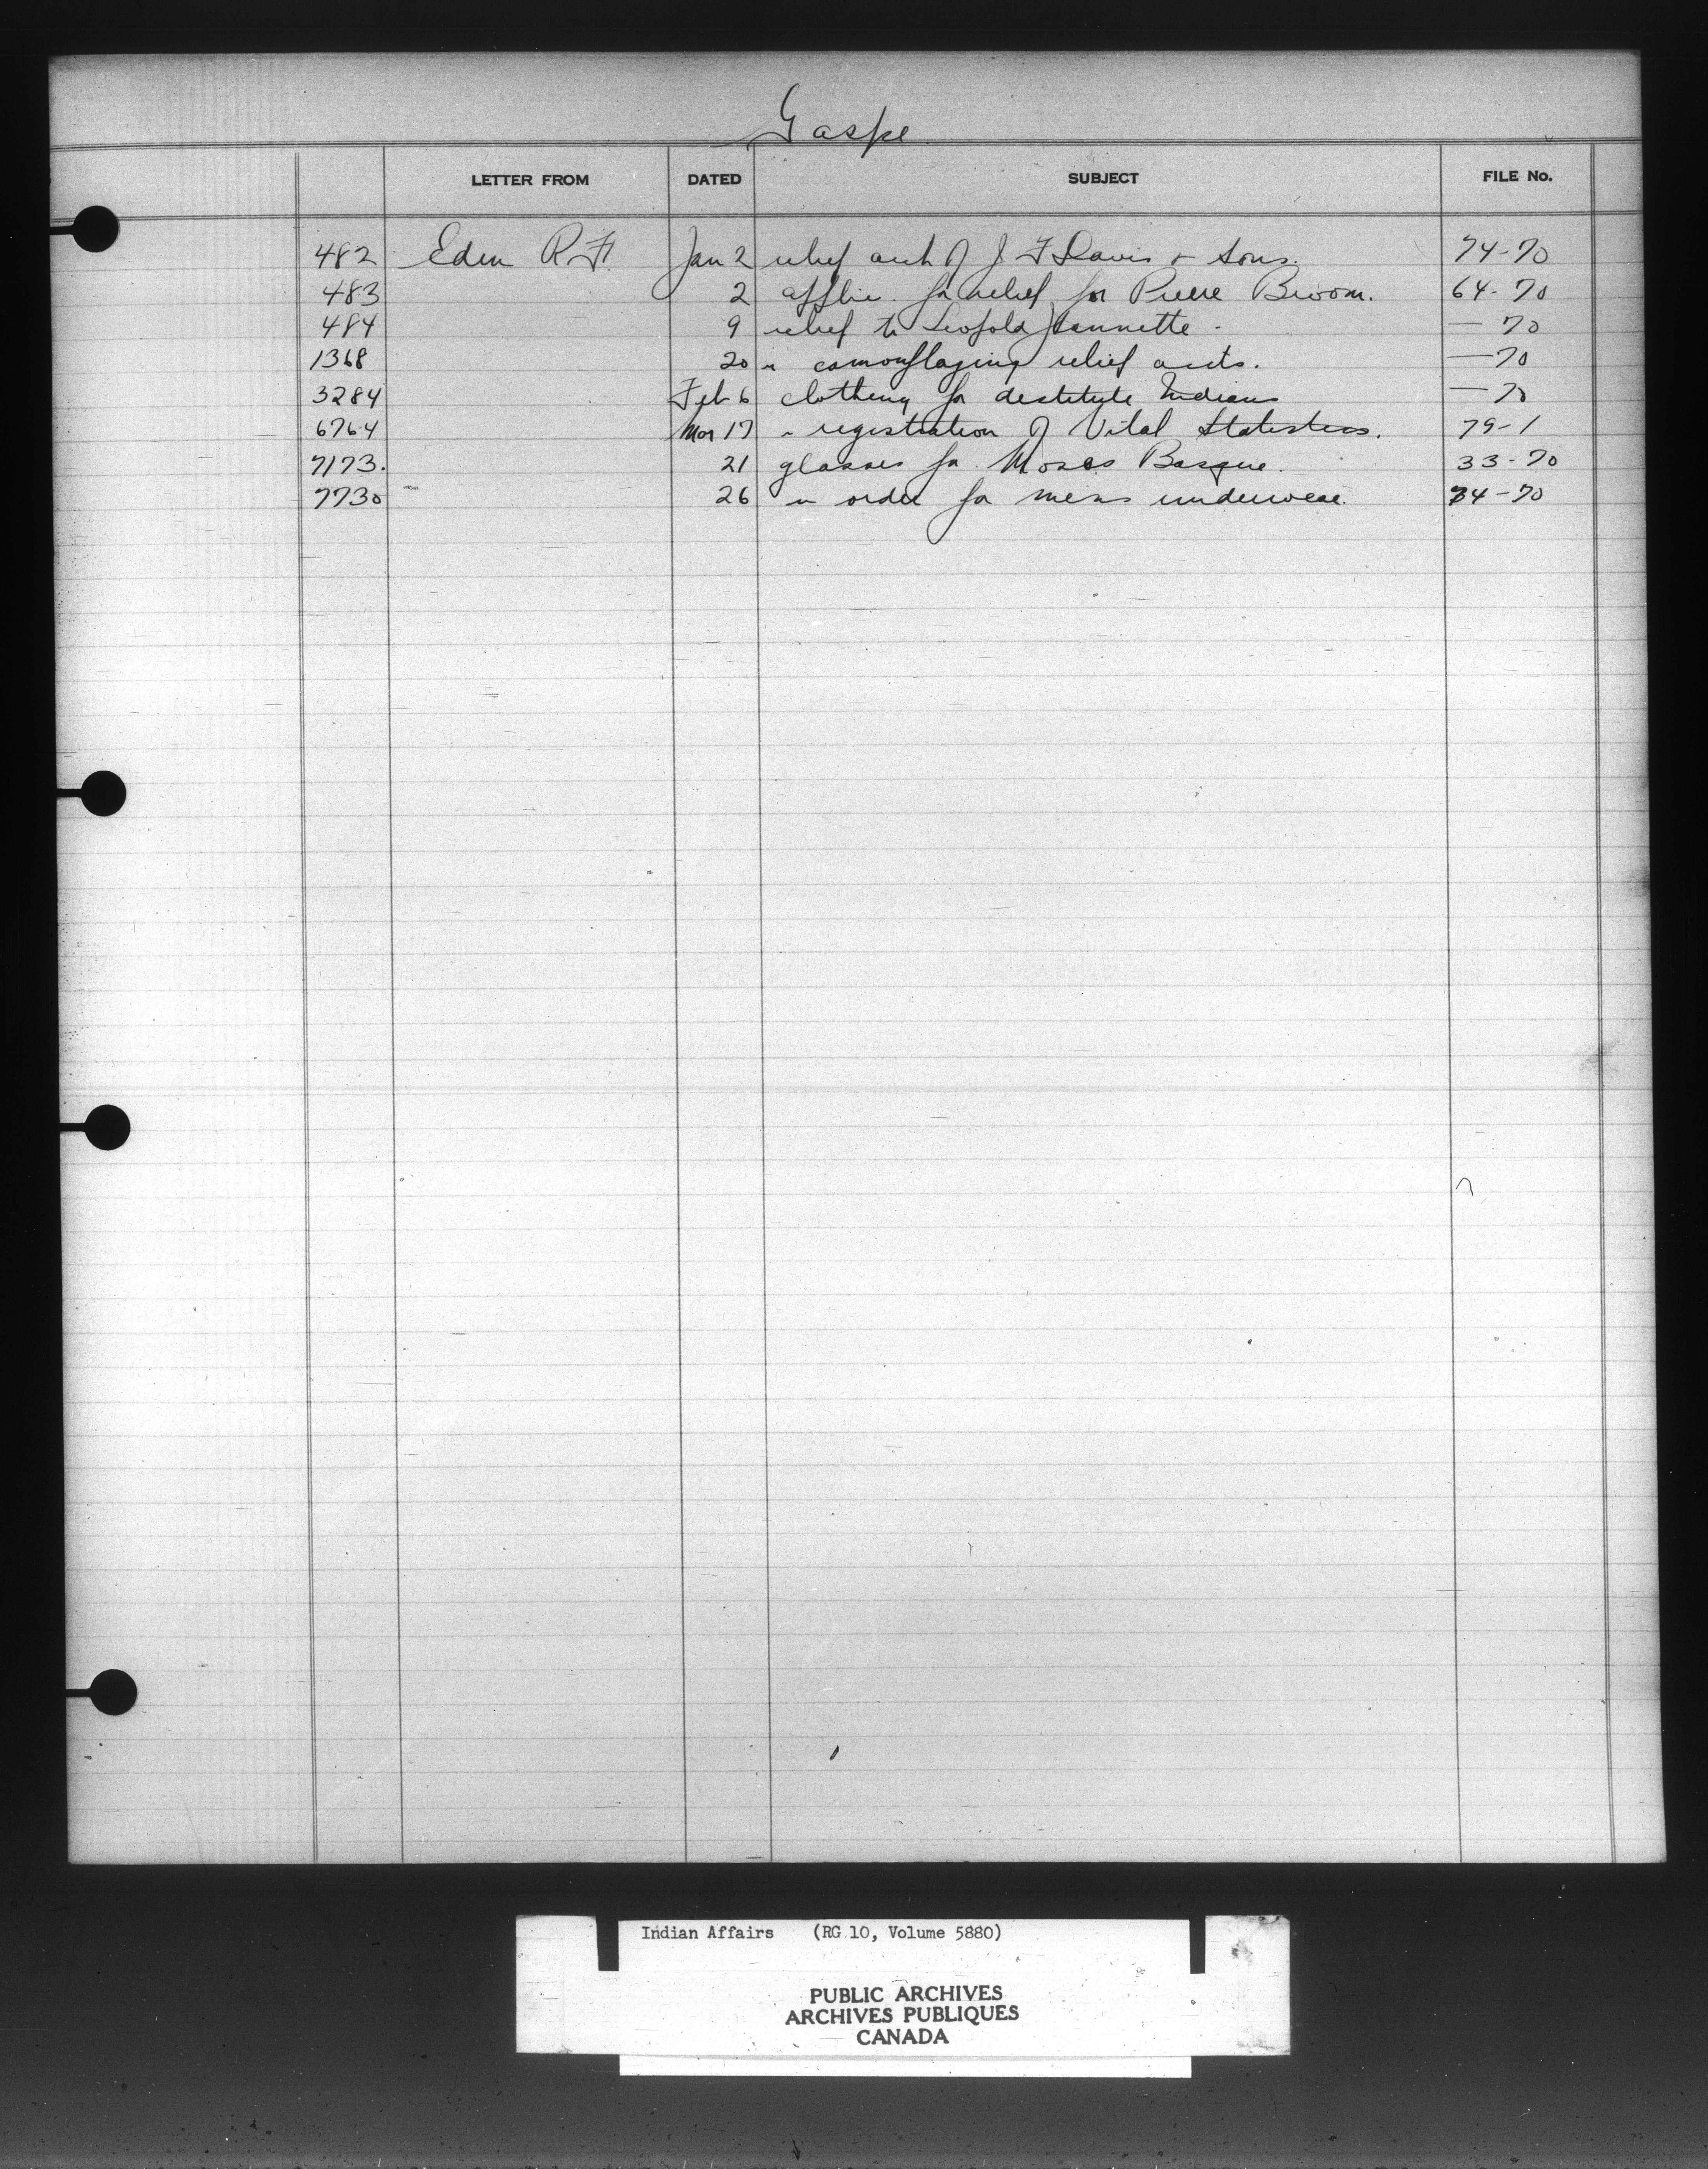 Gaspe
LETTER FROM DATED SUBJECT FILE No.
482 Eden R.F. Jan 2 relief acct of J F Davis & Sons. 74-70
483 2 applic. for relief for Pierre Broom. 64-70
484 9 relief to Leopold Jeannette - — 70
1368 20 " camouflaging relief accts. — 70
3284 Feb 6 clothing for destitute Indians — 70
6764 Mar 17 " registration of Vital Statistics. 79-1
7173. 21 glasses for Moses Basque. 33-70
7730 26 " order for mens underwear. 74-70
Indian Affairs (RG 10, Volume 5880)
PUBLIC ARCHIVES
ARCHIVES PUBLIQUES
CANADA